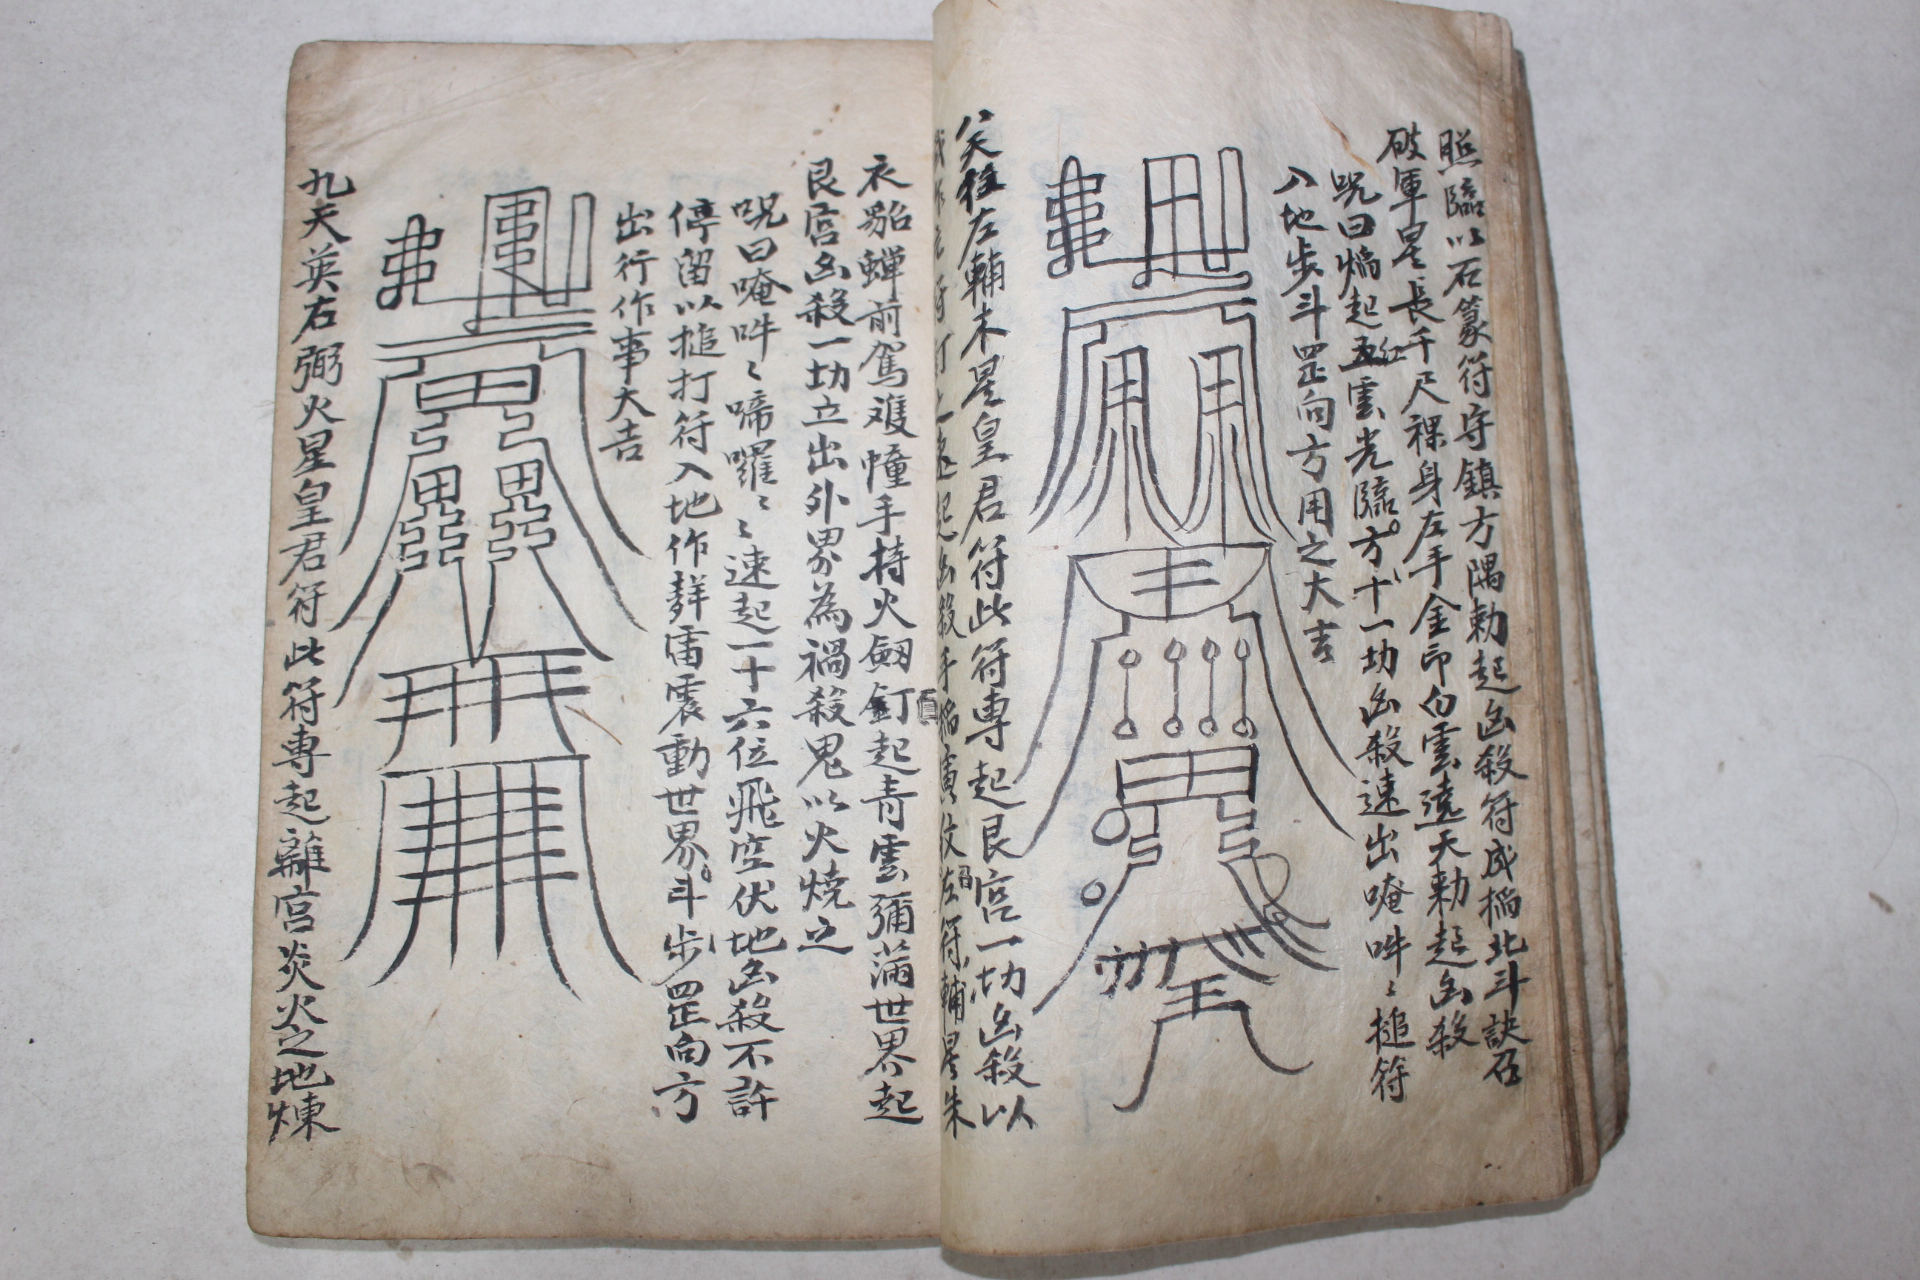 照臨以石篆符守鎮方隅勅起凶殺符成搯北斗訣召
破軍星長千尺裸身左手金印白雲遶天勅起凶殺
咒曰焰起五雲光臨方十一切凶殺速出唵吽〻搥符
入地步斗罡向方用之大吉
左輔木星皇君符此符專起艮宮一切凶殺以
左符輔星朱
衣貂蟬前駕鸡幢手持火劔釘起青雲彌滿世界起
艮宮凶殺一切立出外界為禍殺鬼以火燒之
咒曰唵吽〻啼囉〻〻速起一十六位飛空伏地凶殺不許
停留以搥打符入地作霹雷震動世界斗步罡向方
出行作事大吉
九天英右弼火星皇君符此符專起離宮炎火之地煉